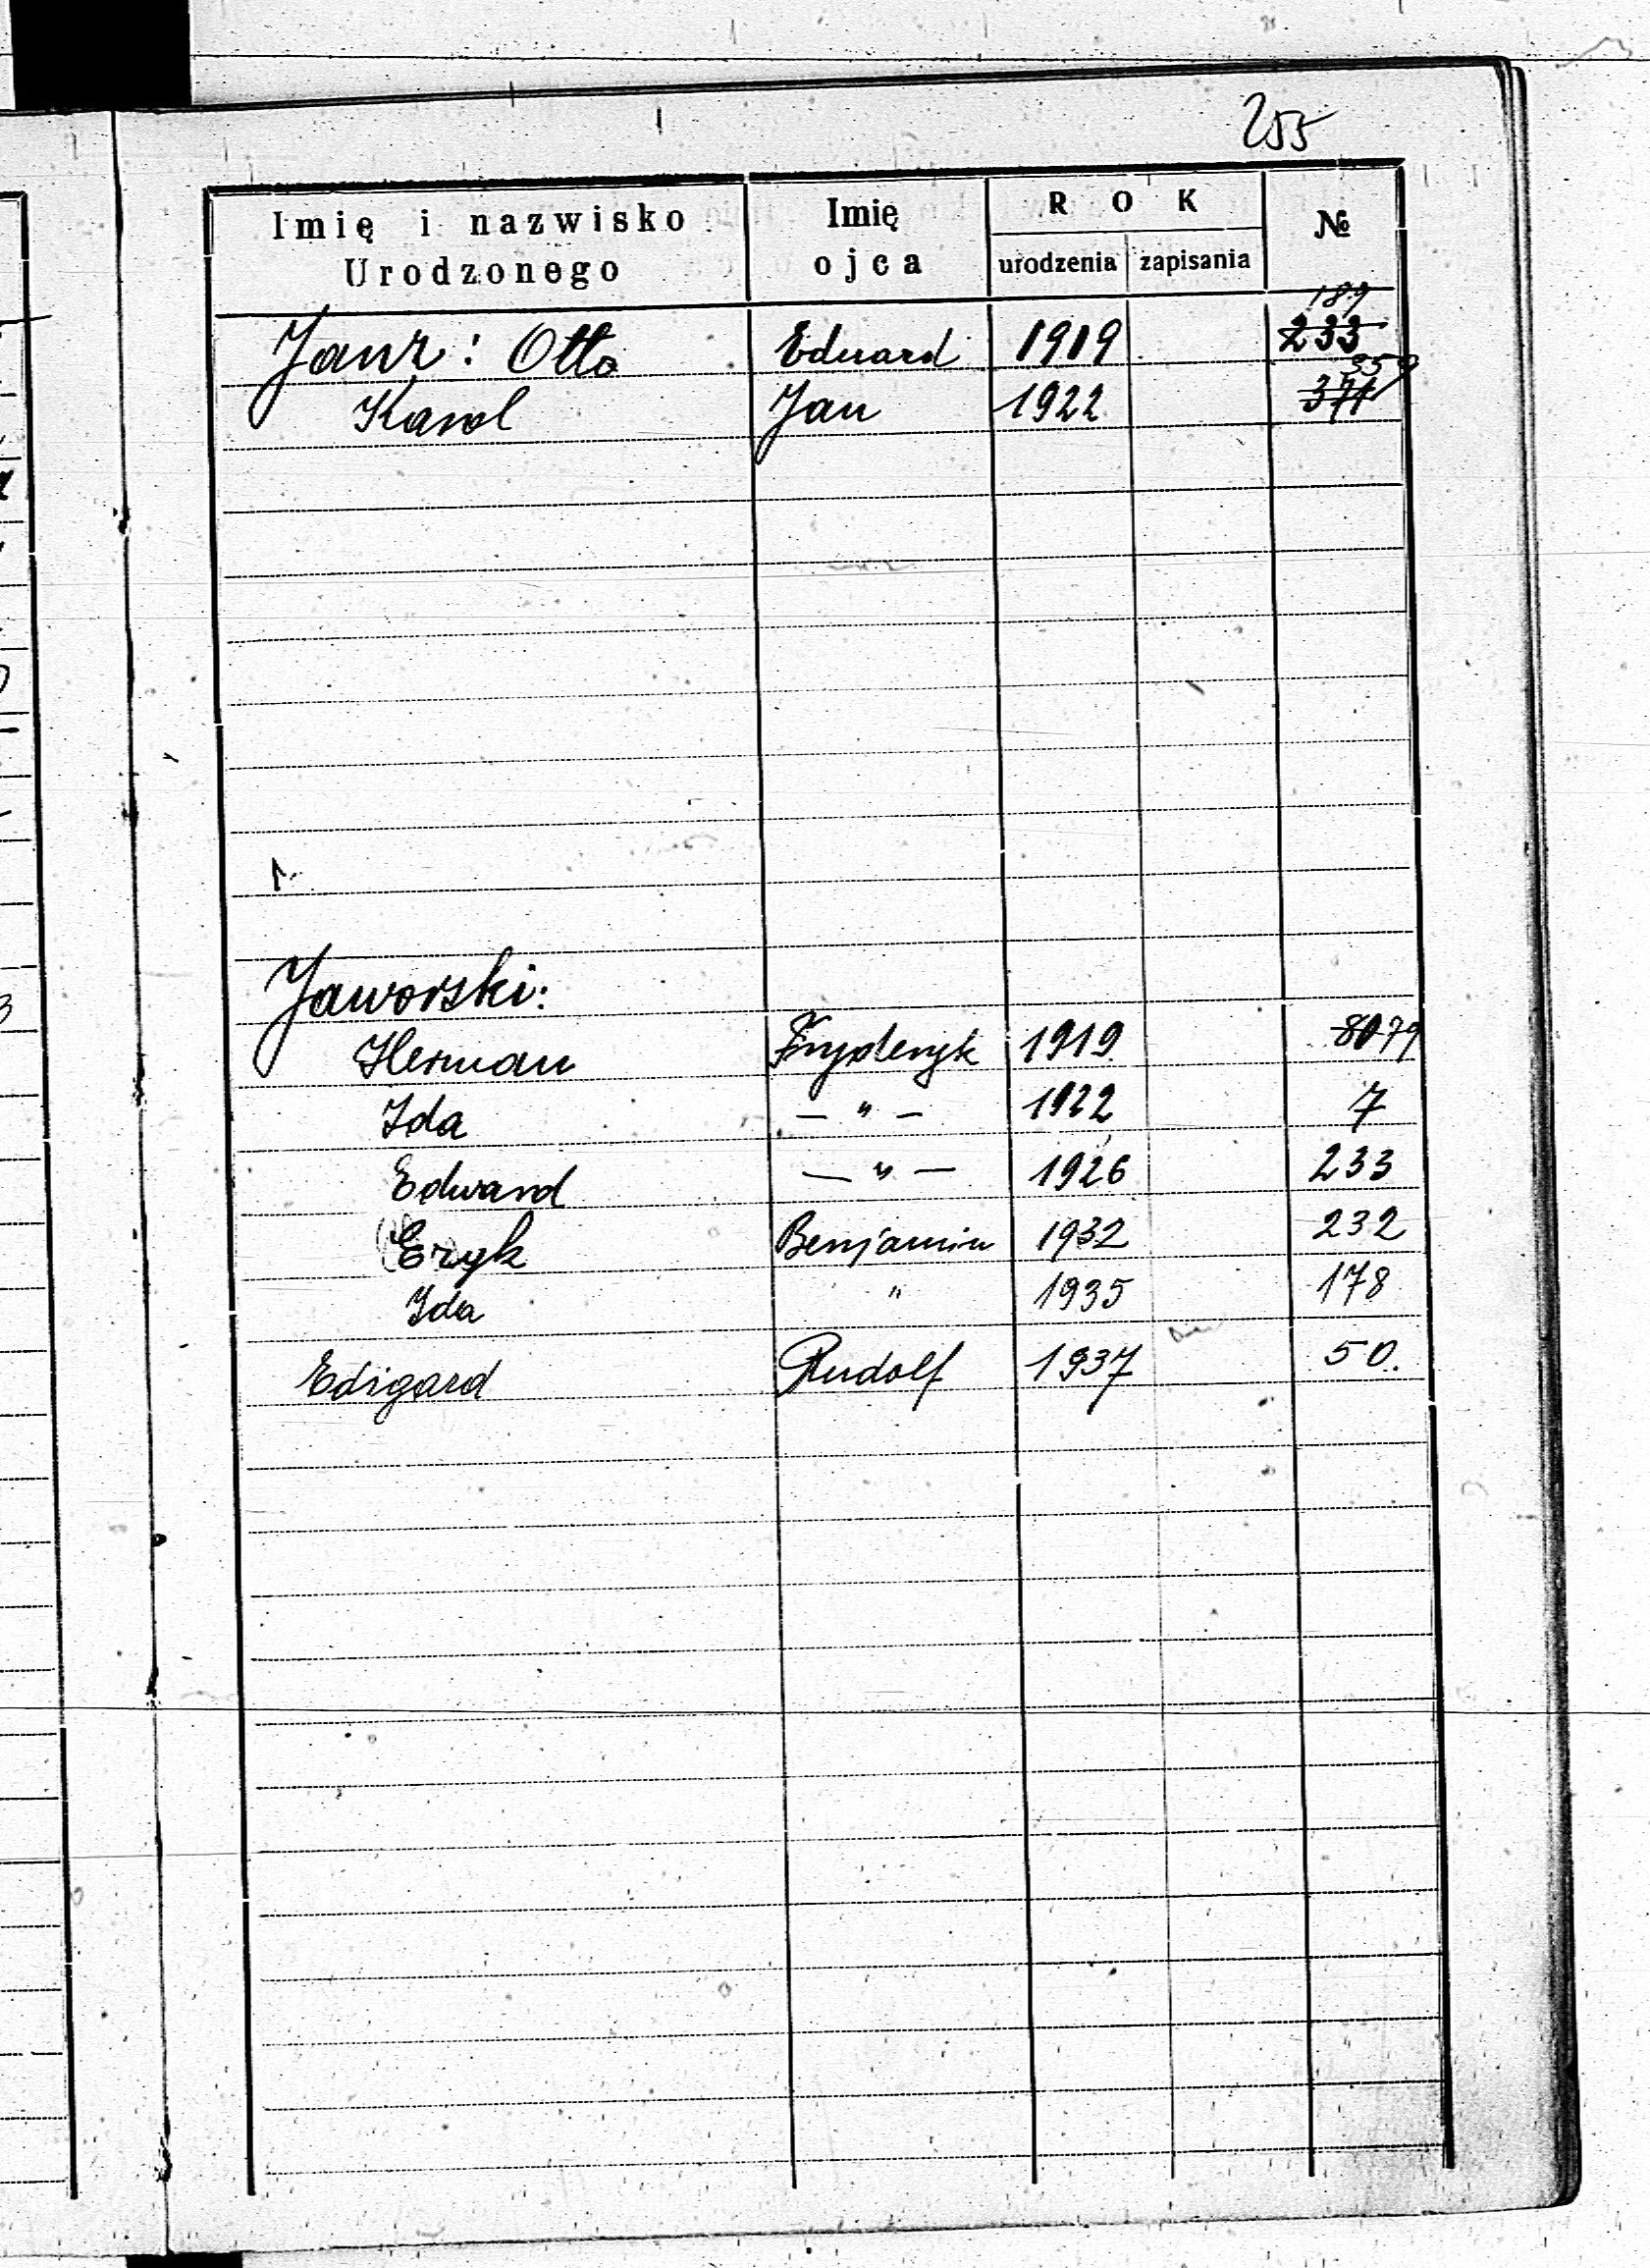 255
Imię i nazwisko Urodzonego Imię ojca ROK urodzenia zapisania №
189
Janz: Otto Eduard 1919 233
359
Karol Jan 1922 371
Jaworski:
Herman Fryderyk 1919 80 79
Ida — " — 1922 7
Edward — " — 1926 233
Eryk Benjamin 1932 232
Ida " 1935 178
Edigard Rudolf 1937 50.